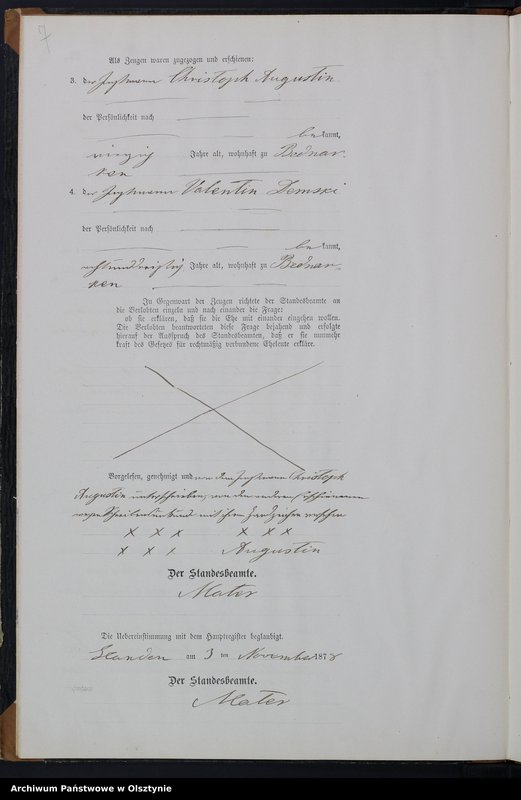 7
Als Zeugen waren zugezogen und erschienen:
3. der Instmann Christoph Augustin
der Persönlichkeit nach
bekannt,
vierzig Jahre alt, wohnhaft zu Bednar-
ken
4. der Instmann Valentin Demski
der Persönlichkeit nach
bekannt,
achtunddreißig Jahre alt, wohnhaft zu Bednar-
ken
In Gegenwart der Zeugen richtete der Standesbeamte an
die Verlobten einzeln und nach einander die Frage:
ob sie erklären, daß sie die Ehe mit einander eingehen wollen.
Die Verlobten beantworteten diese Frage bejahend und erfolgte
hierauf der Ausspruch des Standesbeamten, daß er sie nunmehr
kraft des Gesetzes für rechtmäßig verbundene Eheleute erkläre.
Vorgelesen, genehmigt und von dem Instmann Christoph
Augustin unterschrieben, von den anderen Erschienenen
wegen Schreibensunkunde mit ihren Handzeichen versehen
x x x x x x
x x x Augustin
Der Standesbeamte.
Mater
Die Uebereinstimmung mit dem Hauptregister beglaubigt.
am 3 ten November 1878
Der Standesbeamte.
Mater
Archiwum Państwowe w Olsztynie